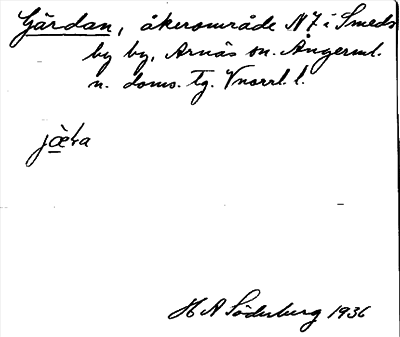 Gärdan, åkerområde N 7 i Smeds
by by, Arnäs sn. Ångerml.
n. doms. tg. Vnorrl. l.
H A Söderberg 1936